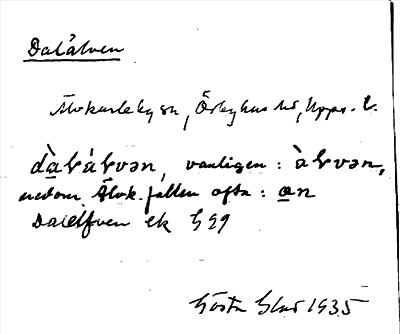 Dalälven
Älvkarleby sn, Örbyhus hd, Upps. l.
dàlálvən, vanligen: àlvən,
nedom Älvk. fallen ofta: ən
Dalelfven ek
Gösta 1935